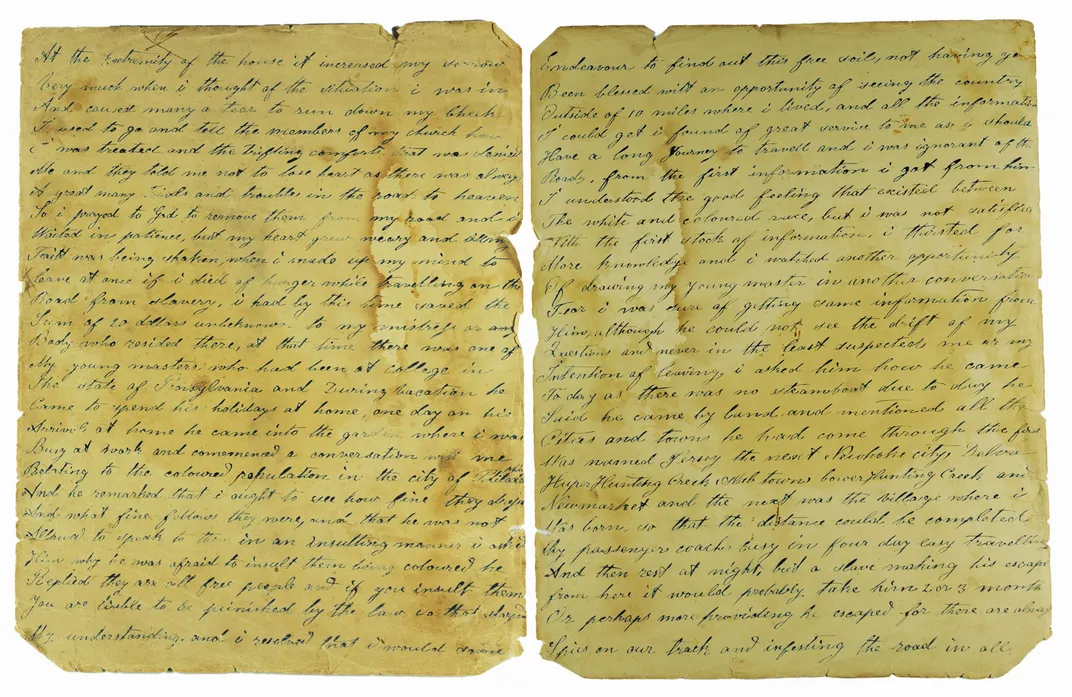 At the Extremity of the house it increased my sorrow
Very much when i thought of the situation i was in
And caused many a tear to run down my cheek
I used to go and tell the members of my church how
i was treated and the trifling comforts that was denied
Me and they told me not to lose heart as there was always
A great many trials and troubles in the road to heaven
So i prayed to God to remove them from my road and i
Waited in patience, but my heart grew weary and
Faith was being shaken, when i made up my mind to
leave at once if i died of hunger while travelling on the
Road from slavery, i had by this time saved the
Sum of 20 dollars unbeknown to my mistress or any
Body who resided there, at that time there was one of
My young masters who had been at college in
The state of Pinsylvania and During vacation he
Came to spend his holidays at home, one day on his
Arrival at home he came into the garden where i was
Busy at work and comenced a conversation with me
Relating to the coloured population in the city of
And he remarked that i ought to see how fine they dress
And what fine fellows they were, and that he was not
Allowed to speak to them in an insulting manner i asked
Him why he was afraid to insult them being coloured, he
Replied they are all free people and if you insult them
You are liable to be punished by the law, so that
My understanding, and i resolved that i would
Endeavour to find out this free soil, not having yet
Been blessed with an opportunity of seeing the country
Outside of 10 miles where i lived, and all the information
I could get i found of great service to me as i should
Have a long Journey to travell and i was ignorant of the
Road, from the first information i got from him
I understood the good feeling that existed between
The white and coloured race, but i was not satisfied
With the first stock of information, i thirsted for
More knowledge and i watched another opportunity
Of drawing my young master in another conversation
Fear i was sure of gitting same information from
Him, although he could not see the drift of my
Questions and never in the least suspected me or my
Intention of leaving, i asked him how he came
To day as there was no steamboat due to day, he
Said he came by land and mentioned all the
Cities and towns he had come through the first
Was named Jersey the next
Hunting Creek towns Hunting Creek and
Newmarket and the next was the village where i
Was born, so that the distance could be completed
By passengers coaches Easy in four day easy travelling
And then rest at night, but a slave making his escape
from here it would probably take him 2 or 3 month
Or perhaps more providing he escaped for there are always
Spies on our track and infesting the road in all